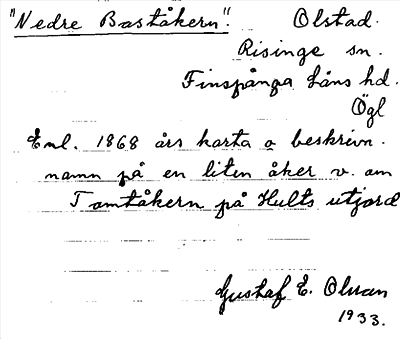 "Nedre Baståkern". Olstad.
Risinge sn.
Finspånga läns hd.
Ögl
Enl. 1868 års karta o beskrivn.
namn på en liten åker v. om
Tomtåkern på Hults utjord
Gustaf E. Olsson
1933.